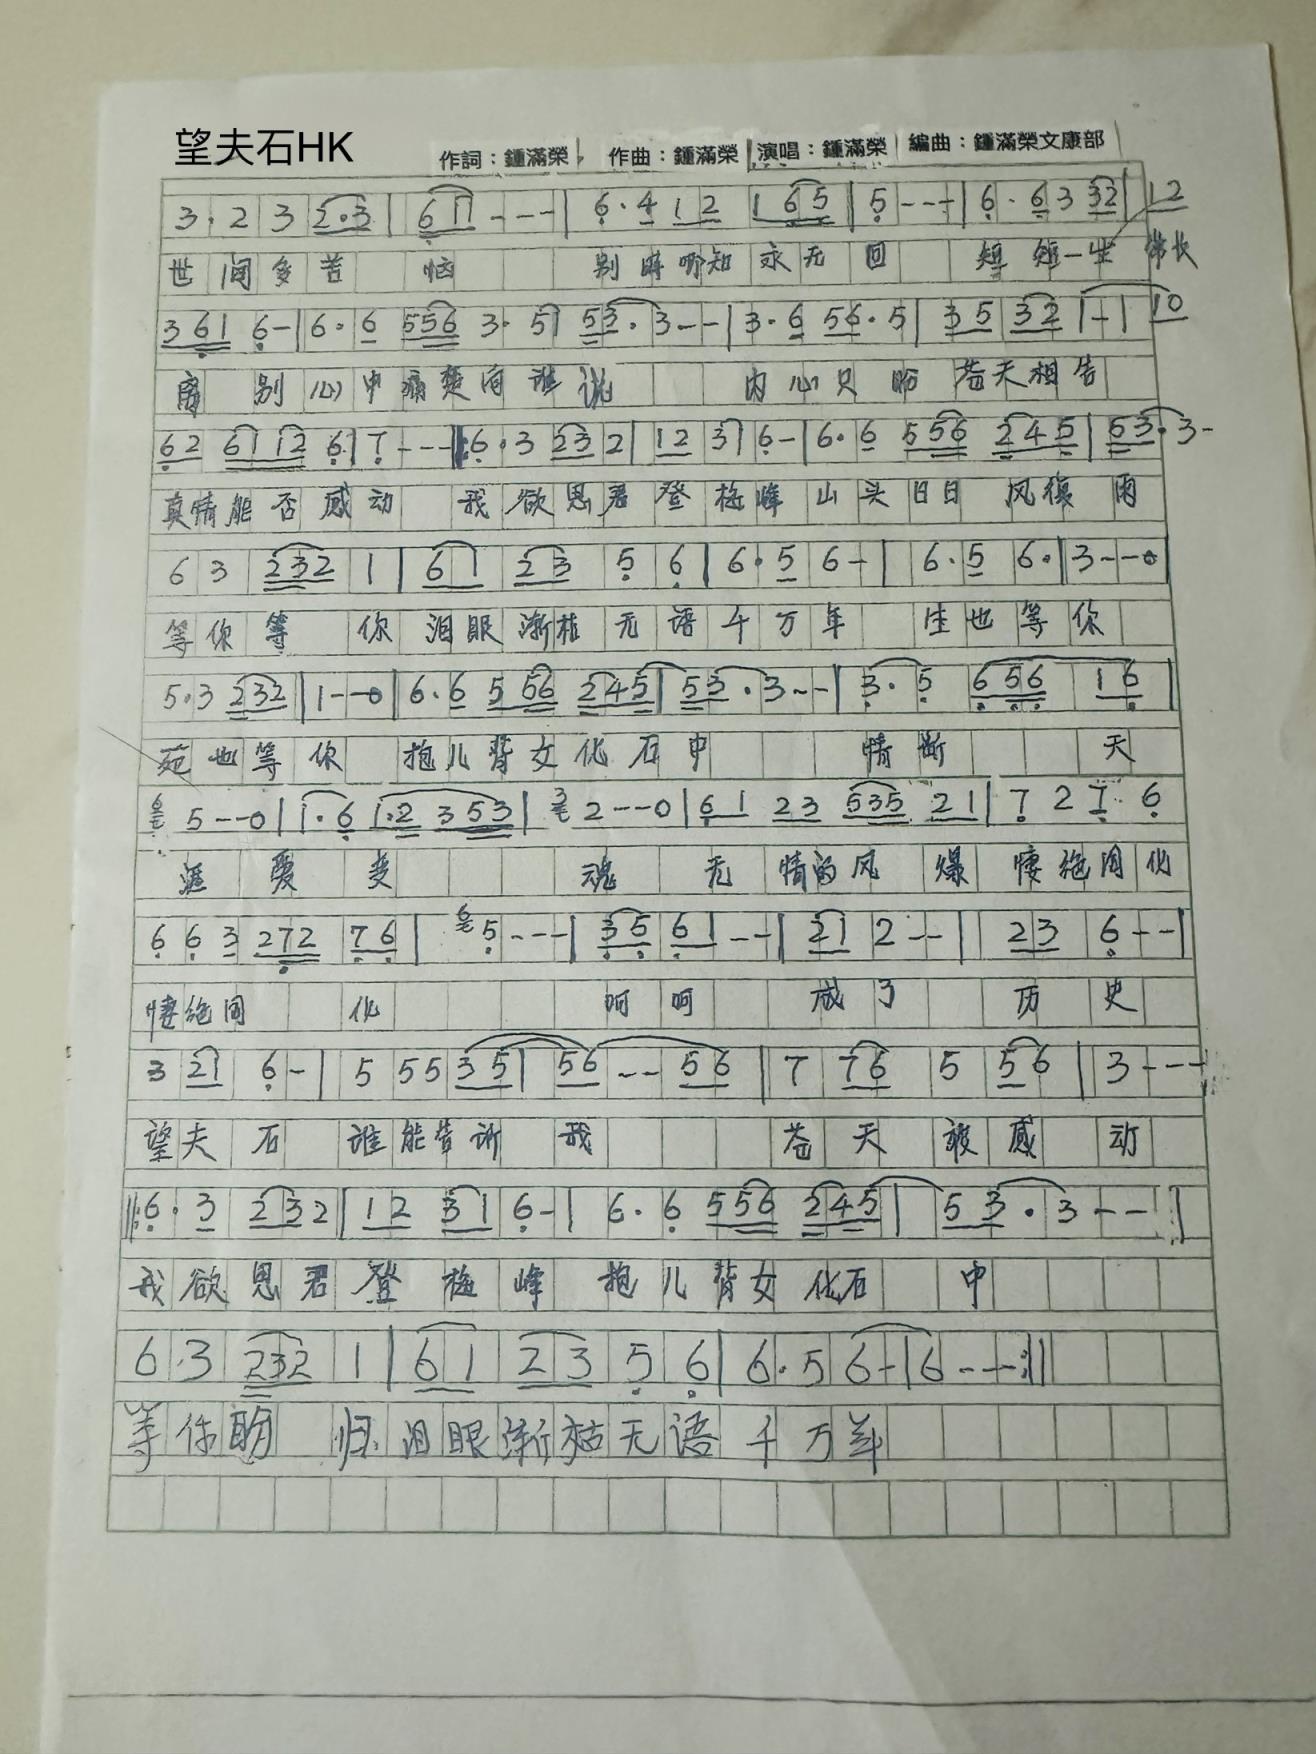 望夫石HK 作詞：鍾滿榮 作曲：鍾滿榮 演唱：鍾滿榮 編曲：鍾滿榮文康部
3·2 3 2·3 | 6 1 1 - - - | 6·4 1 2 1 6 5 | 5 - - - | 6·6 3 32 | 12
世间多苦 恼 别时哪知永无回 短短一生 常长
361 6- | 6·6 556 3·5 | 53·3-- | 3·6 56·5 | 35 32 | 1-1 10
离别心中痛楚向谁说 内心只盼苍天相告
62 61 12 6 | 7 - - - |: 6·3 23 2 | 12 3 | 6- | 6·6 556 245 | 53·3-
真情能否感动 我欲思君登梅峰山头日日风复雨
6 3 232 1 | 61 23 5 6 | 6·5 6- | 6·5 6· | 3--0
等你等 你泪眼渐枯无语千万年 生也等你
5·3 232 | 1--0 | 6·6 5 56 245 | 53·3-- | 3·5 656 16 |
死也等你 抱儿背女化石中 情断 天
5--0 | 1·6 1·2 353 | 2--0 | 61 23 535 21 | 7 2 7 6
涯 爱 变 魂 无情的风爆 悽绝同化
6 6 3 272 76 | 5--- | 35 61-- | 21 2-- | 23 6--|
悽绝同 化 呵呵 成了 历史
3 21 6- | 5 55 35 | 56 -- 56 | 7 76 5 56 | 3---
望夫石 谁能告诉 我 苍天被感动
‖: 6·3 232 | 12 31 6- | 6·6 556 245 | 53·3-- |
我欲思君登梅峰 抱儿背女化石 中
6·3 232 1 | 61 23 5 6 | 6·5 6- | 6---:‖
等你盼 归泪眼渐枯无语千万年